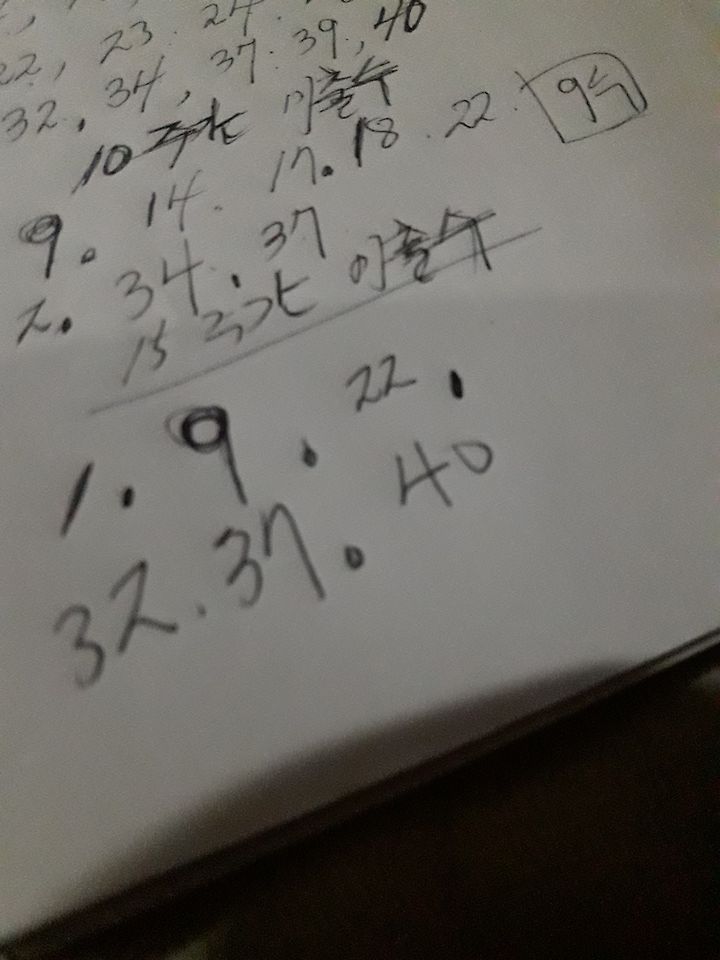 22, 23. 24.
32. 34, 37. 39, 40
10 주차 미출수
9. 14. 17. 18. 22. 9수
2. 34. 37
15 주차 미출수
1. 9. 22.
32. 37. 40